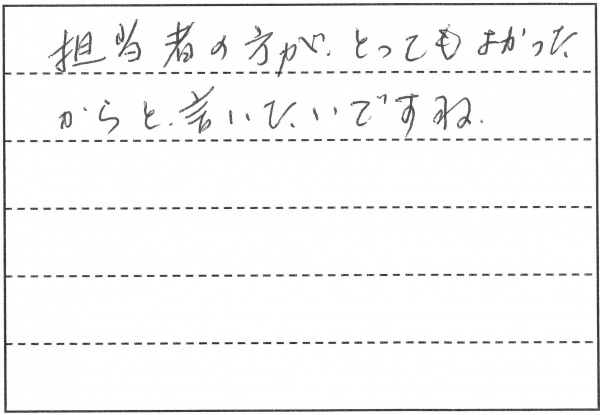 担当者の方が、とってもよかった
からと、言いたいですね。